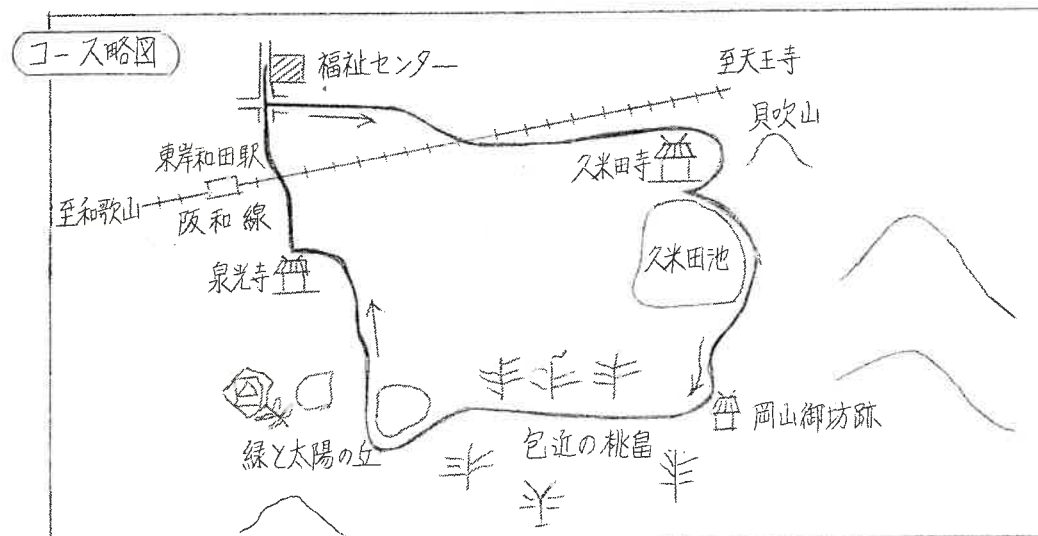 コース略図
福祉センター
至天王寺
貝吹山
東岸和田駅
久米田寺
至和歌山
阪和線
久米田池
泉光寺
岡山御坊跡
緑と太陽の丘
包近の桃畠